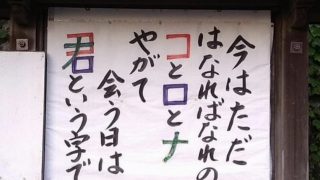 今はただ
はなればなれの
コとロとナ
やがて
会う日は
君という字で